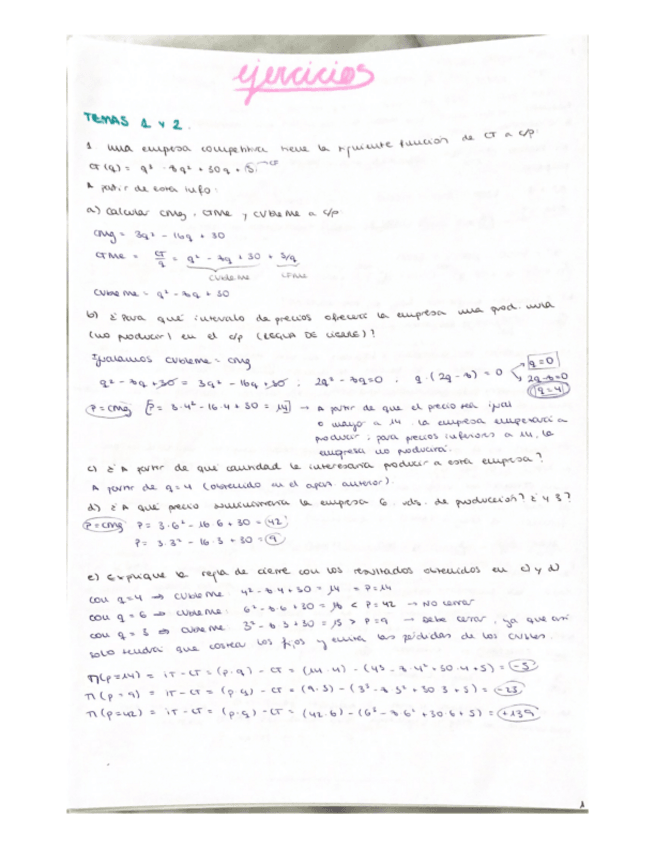 ejercicios
TEMAS 1 y 2.
1 una empresa competitiva tiene la siguiente función de CT a c/p.
CT(q) = q³ - 8q² + 30q + 5 → CF
A partir de esta info:
a) Calcular CMg, CTMe y CVbleMe a c/p
CMg = 3q² - 16q + 30
CTMe = CT/q = q² - 8q + 30 + 5/q
CVbleMe CFMe
CVbleMe = q² - 8q + 30
b) ¿Para qué intervalo de precios ofrecerá la empresa una prod. nula
(no producir) en el c/p (REGLA DE CIERRE)?
Igualamos CVbleMe = CMg q=0
q² - 8q + 30 = 3q² - 16q + 30 ; 2q² - 8q = 0 . q·(2q - 8) = 0 2q-8=0
q=4
P = CMg [P = 3·4² - 16·4 + 30 = 14] → A partir de que el precio sea igual
o mayor a 14, la empresa empezará a
producir; para precios inferiores a 14, la
empresa no producirá.
c) ¿A partir de que cantidad le interesaría producir a esta empresa?
A partir de q=4 (obtenido en el apart. anterior).
d) ¿A qué precio suministraría la empresa 6 uds. de producción? ¿y 3?
P=CMg P = 3·6² - 16·6 + 30 = 42
P = 3·3² - 16·3 + 30 = 9
e) Explique la regla de cierre con los resultados obtenidos en c) y d)
con q=4 → CVbleMe: 4² - 8·4 + 30 = 14 = P=14
con q=6 → CVbleMe: 6² - 8·6 + 30 = 18 < P=42 → No cerrar
con q=3 → CVbleMe: 3² - 8·3 + 30 = 15 > P=9 → Debe cerrar, ya que así
solo tendrá que costear los fijos y evita las pérdidas de los CVbles.
π(p=14) = IT - CT = (p·q) - CT = (14·4) - (4³ - 8·4² + 30·4 + 5) = -5
π(p=9) = IT - CT = (p·q) - CT = (9·3) - (3³ - 8·3² + 30·3 + 5) = -23
π(p=42) = IT - CT = (p·q) - CT = (42·6) - (6³ - 8·6² + 30·6 + 5) = +139
1